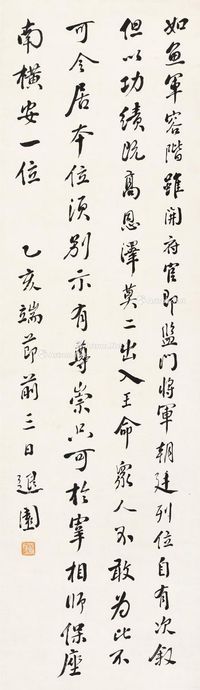 如魚軍容階雖開府官即監門將軍朝廷列位自有次敘
但以功績既高恩澤莫二出入王命衆人不敢為比不
可令居本位須別示有尊崇只可於宰相師保座
南橫安一位 乙亥端節前三日 退園